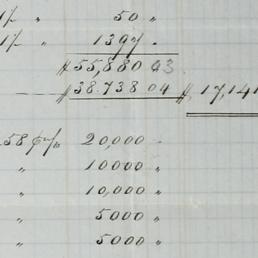 1% " 50 "
1% " 1397 "
$55,880 03
$38.738 04 $17,141
58 c/o 20,000 "
" 10000 "
" 10,000 "
" 5000 "
" 5000 "